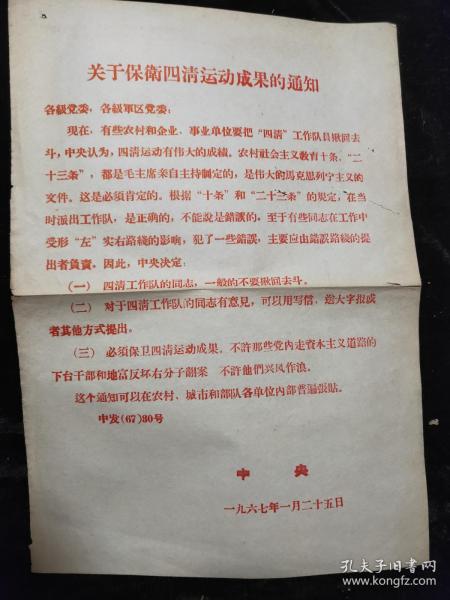 关于保衛四清运动成果的通知
各級党委，各級軍区党委：
现在，有些农村和企业、事业单位要把“四清”工作队員揪回去
斗，中央认为，四清运动有伟大的成績。农村社会主义教育十条、“二
十三条”，都是毛主席亲自主持制定的，是伟大的馬克思列宁主义的
文件。这是必须肯定的。根据“十条”和“二十三条”的規定，在当
时派出工作队，是正确的，不能說是錯誤的。至于有些同志在工作中
受形“左”实右路綫的影响，犯了一些錯誤，主要应由錯誤路綫的提
出者負責。因此，中央决定：
（一） 四清工作队的同志，一般的不要揪回去斗。
（二） 对于四清工作队的同志有意見，可以用写信，送大字报或
者其他方式提出。
（三） 必須保卫四清运动成果。不許那些党内走資本主义道路的
下台干部和地富反坏右分子翻案 不許他們兴风作浪。
这个通知可以在农村、城市和部队各单位内部普遍張貼。
中发（67）30号
中 央
一九六七年一月二十五日
孔夫子旧书网
www.kongfz.com